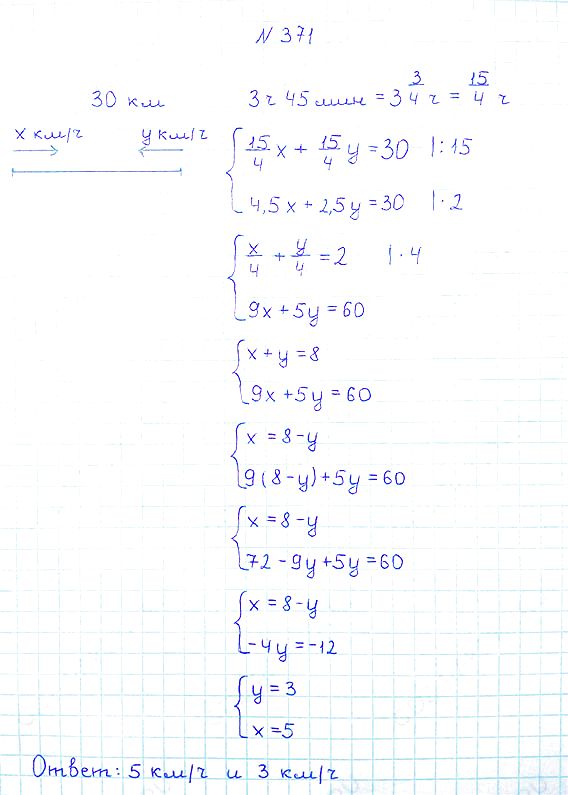 N 371
30 км
3ч 45мин = 3 3/4 ч = 15/4 ч
x км/ч y км/ч
15/4 x + 15/4 y = 30 |: 15
4,5x + 2,5y = 30 | · 2
x/4 + y/4 = 2 | · 4
9x + 5y = 60
x + y = 8
9x + 5y = 60
x = 8 - y
9(8 - y) + 5y = 60
x = 8 - y
72 - 9y + 5y = 60
x = 8 - y
-4y = -12
y = 3
x = 5
Ответ: 5 км/ч и 3 км/ч